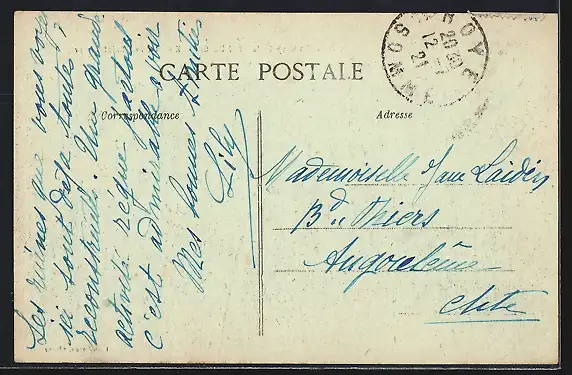 CARTE POSTALE
Correspondance
Adresse
NOYE SOMME
20 30
12 -7
21
Les ruines que vous voyez
ici sont déjà toutes
reconstruites. Une grande
activité règne partout
c'est admirable à voir
Mes bonnes amitiés
Lily
Mademoiselle
Bd Thiers
Angoulême
chte